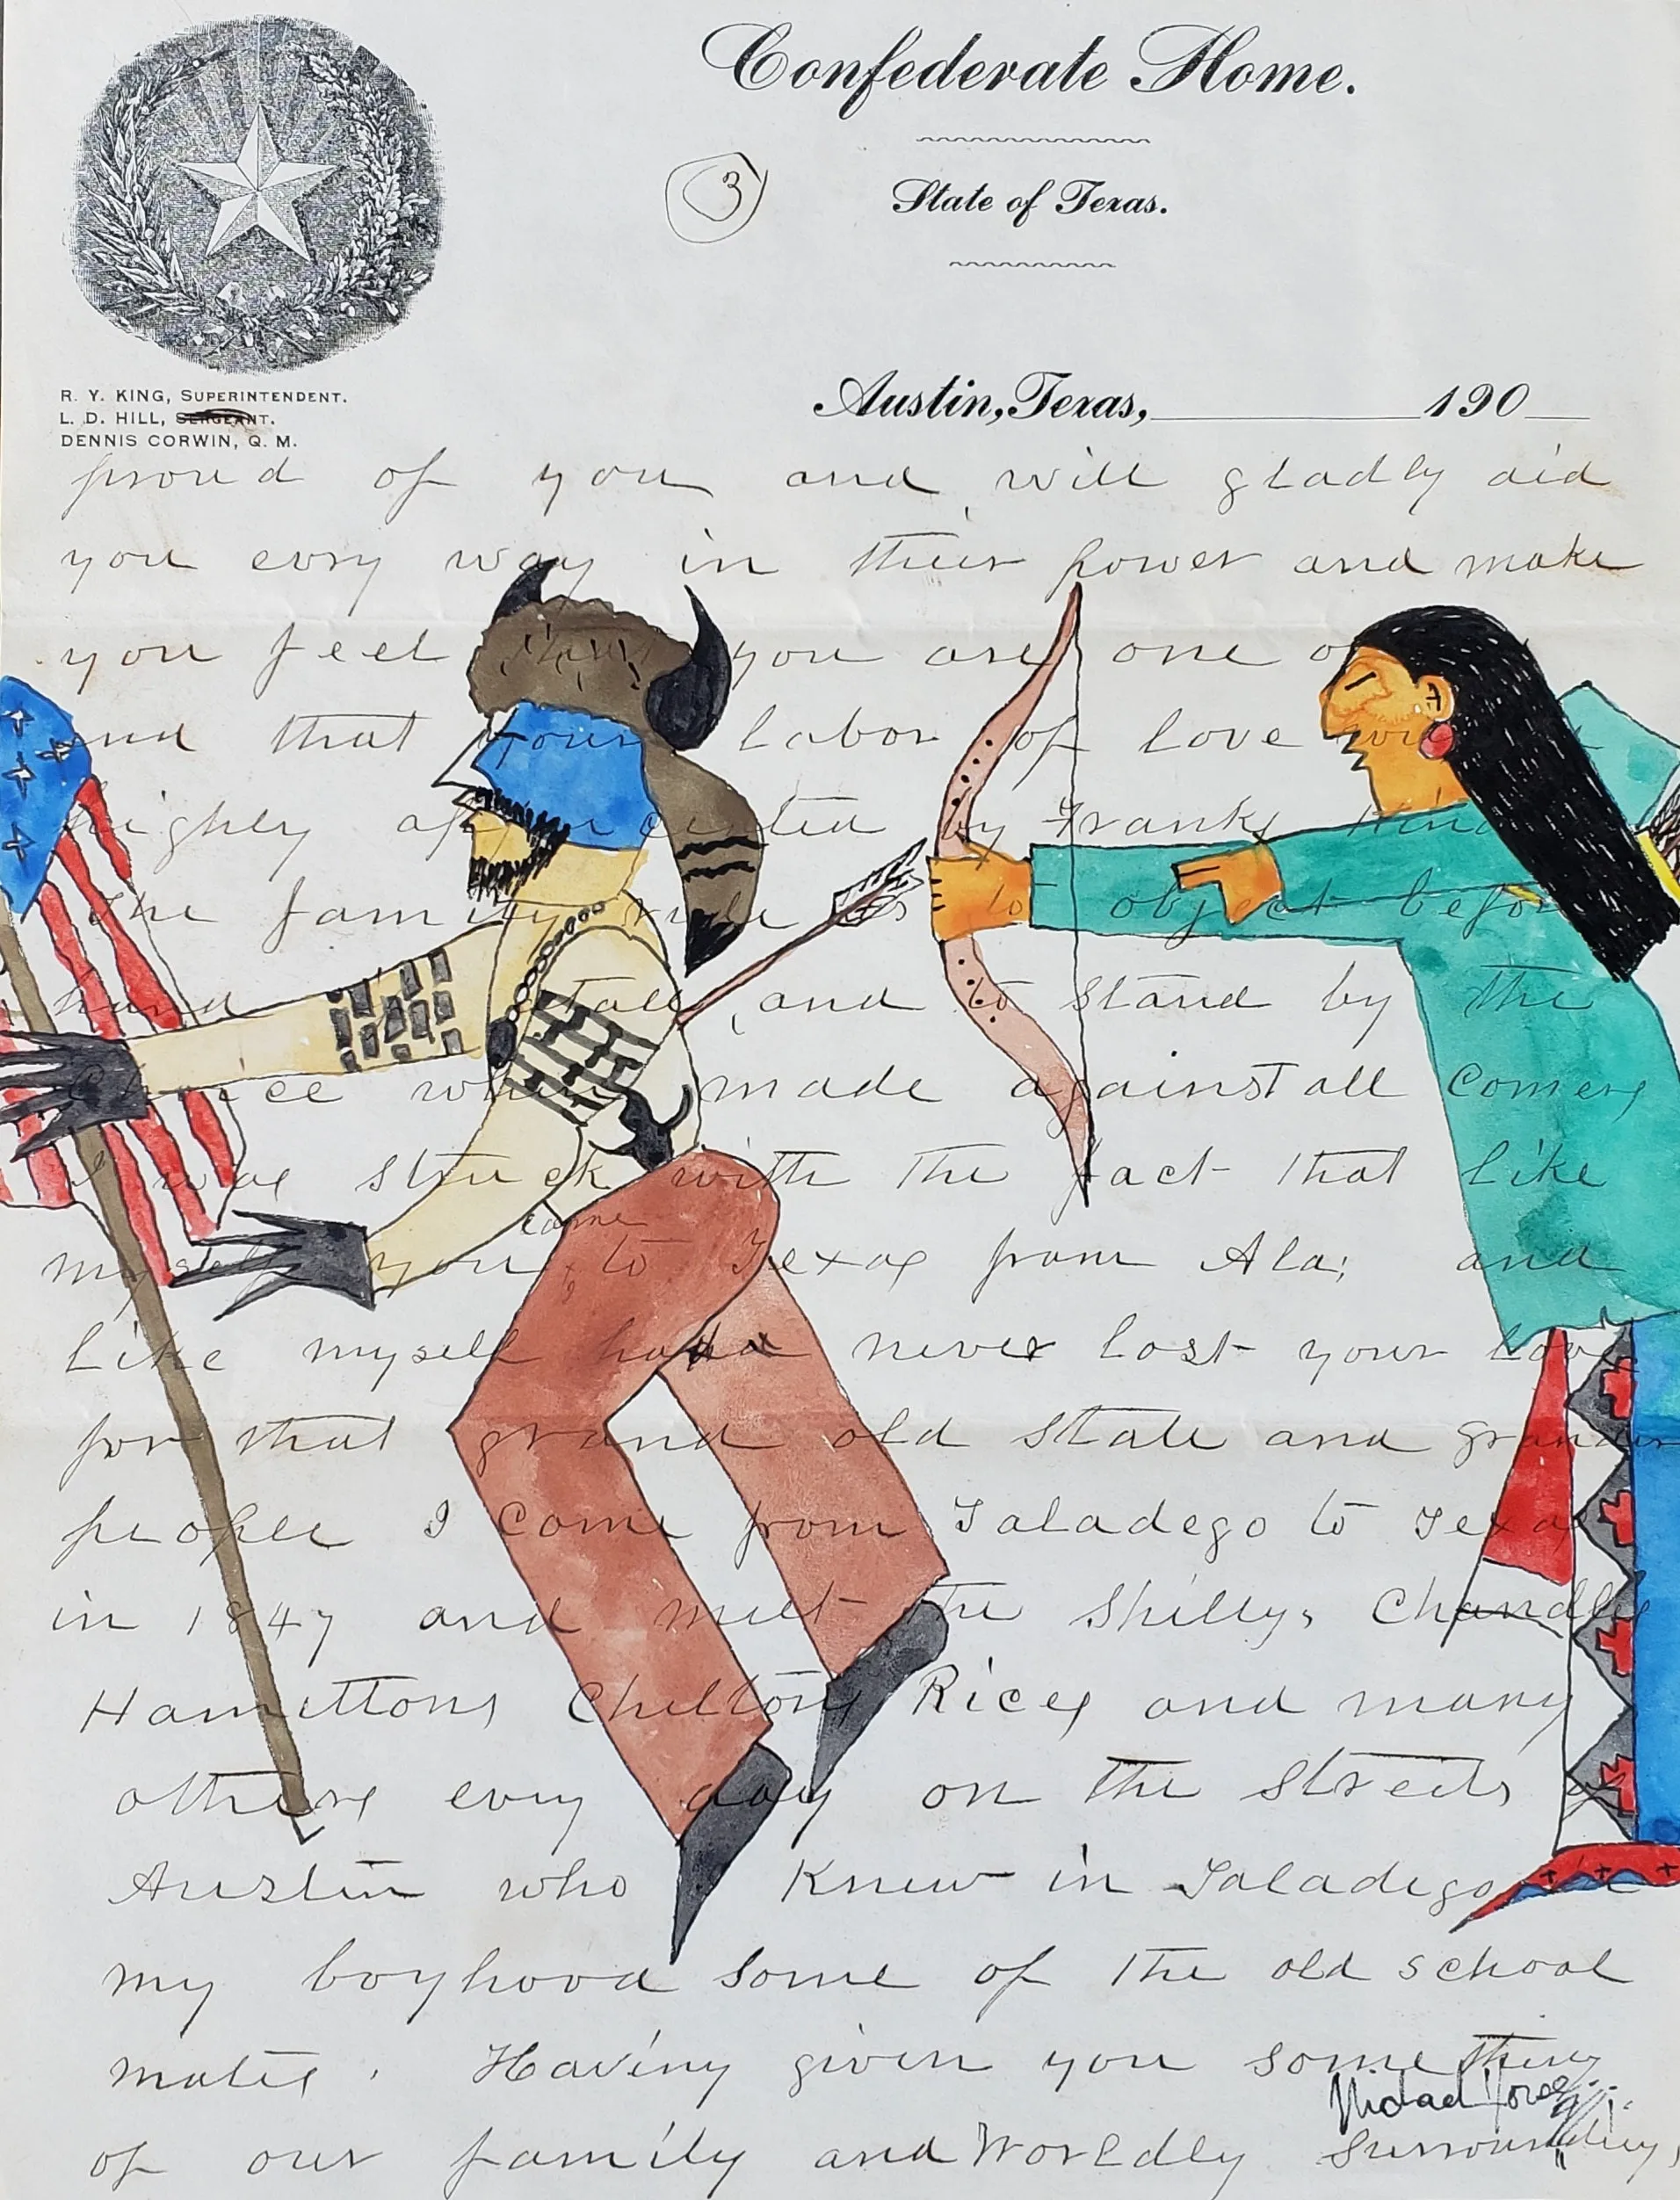 Confederate Home.
3
State of Texas.
R. Y. KING, SUPERINTENDENT.
L. D. HILL, SERGEANT.
DENNIS CORWIN, Q. M.
Austin, Texas, 190
proud of you and will gladly aid
you evry way in their power and make
you feel you are one of
and that your labor of love
highly appreciated by Franks kind
The family rule is to object before
hand and to stand by the
choice when made against all comers
I was struck with the fact that like
came
myself you to Texas from Ala; and
Like myself have never lost your love
for that grand old state and grander
people I come from Taladego to Texas
in 1847 and meet the Shellys Chandlers
Hamittons Cheltons Rices and many
others evry day on the streets of
Austin who Knew in Taladego in
my boyhood some of the old school
mates. Having given you something
of our family and Worldly surroundings